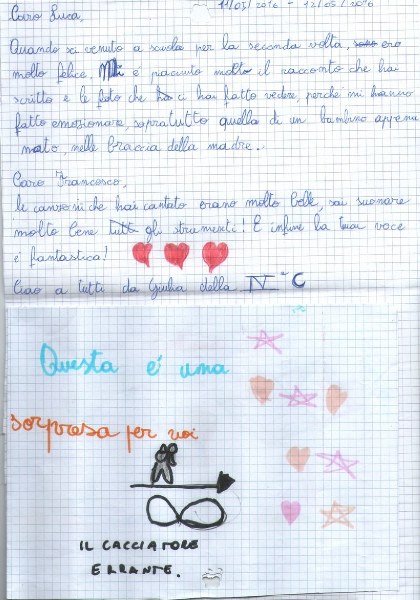 11/05/2016 - 12/05/2016
Caro Luca,
Quando sei venuto a scuola per la seconda volta, ero
molto felice. Mi é paciuto molto il racconto che hai
scritto e le foto che ci hai fatto vedere, perché mi hanno
fatto emozionare, sopratutto quella di un bambino appena
nato, nelle braccia della madre..
Caro Francesco,
le canzoni che hai cantato erano molto belle, sai suonare
molto bene tutti gli strumenti! E infine la tua voce
e' fantastica!
Ciao a tutti da Giulia della IV°C
Questa é una
sorpresa per voi
IL CACCIATORE
ERRANTE.